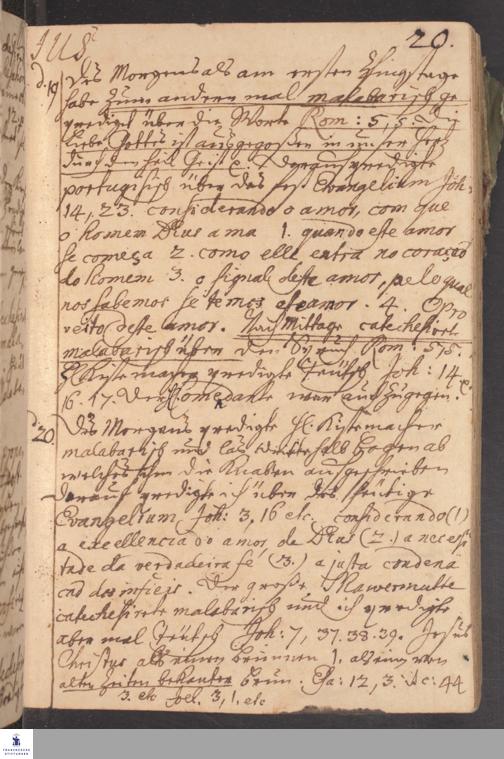 20.
d. 19 Des Morgens als am ersten Pfingstage
habe zum andern mal malabarisch ge
prediget über die Worte Rom: 5, 5. die
Liebe Gottes ist ausgegossen in unser Hertz
durch den heil. Geist etc. darauf predigte
portugisisch über das fest Evangelium Joh:
14, 23. considerando o amor, com que
o homem Deus ama 1. quando este amor
se começa 2. como elle entra no coração
do homem 3. o signal deste amor, pelo qual
nos sabemos se temos este amor. 4. O pro
veito deste amor. Nach Mittage catechesiret
malabarisch über den Spruch Rom: 5, 5.
H. Kistemacher predigte Teütsch Joh: 14
16. 17. Der H. Comendante war auch zugegen.
d. 20. Des Morgens predigte H. Kistemacher
malabarisch und las Bogen ab
welches ihm die Knaben ausgeschrieben
darauf predigte ich über das heütige
Evangelium Joh: 3, 16 etc. considerando (1)
a excellencia do amor de Deus (2.) a necessi
tade da verdadeira fé (3.) a justa condena
caõ dos infieis. Der große Mawermutte
catechesirete malabarisch und ich predigte
aber mal Teütsch Joh: 7, 37. 38. 39. Jesus
Christus als einen brunnen 1. als ein von
alten Zeiten bekanter brun. Esa: 12, 3. it. c: 44
3. etc Joel. 3, 1. etc
FRANCKESCHE
STIFTUNGEN